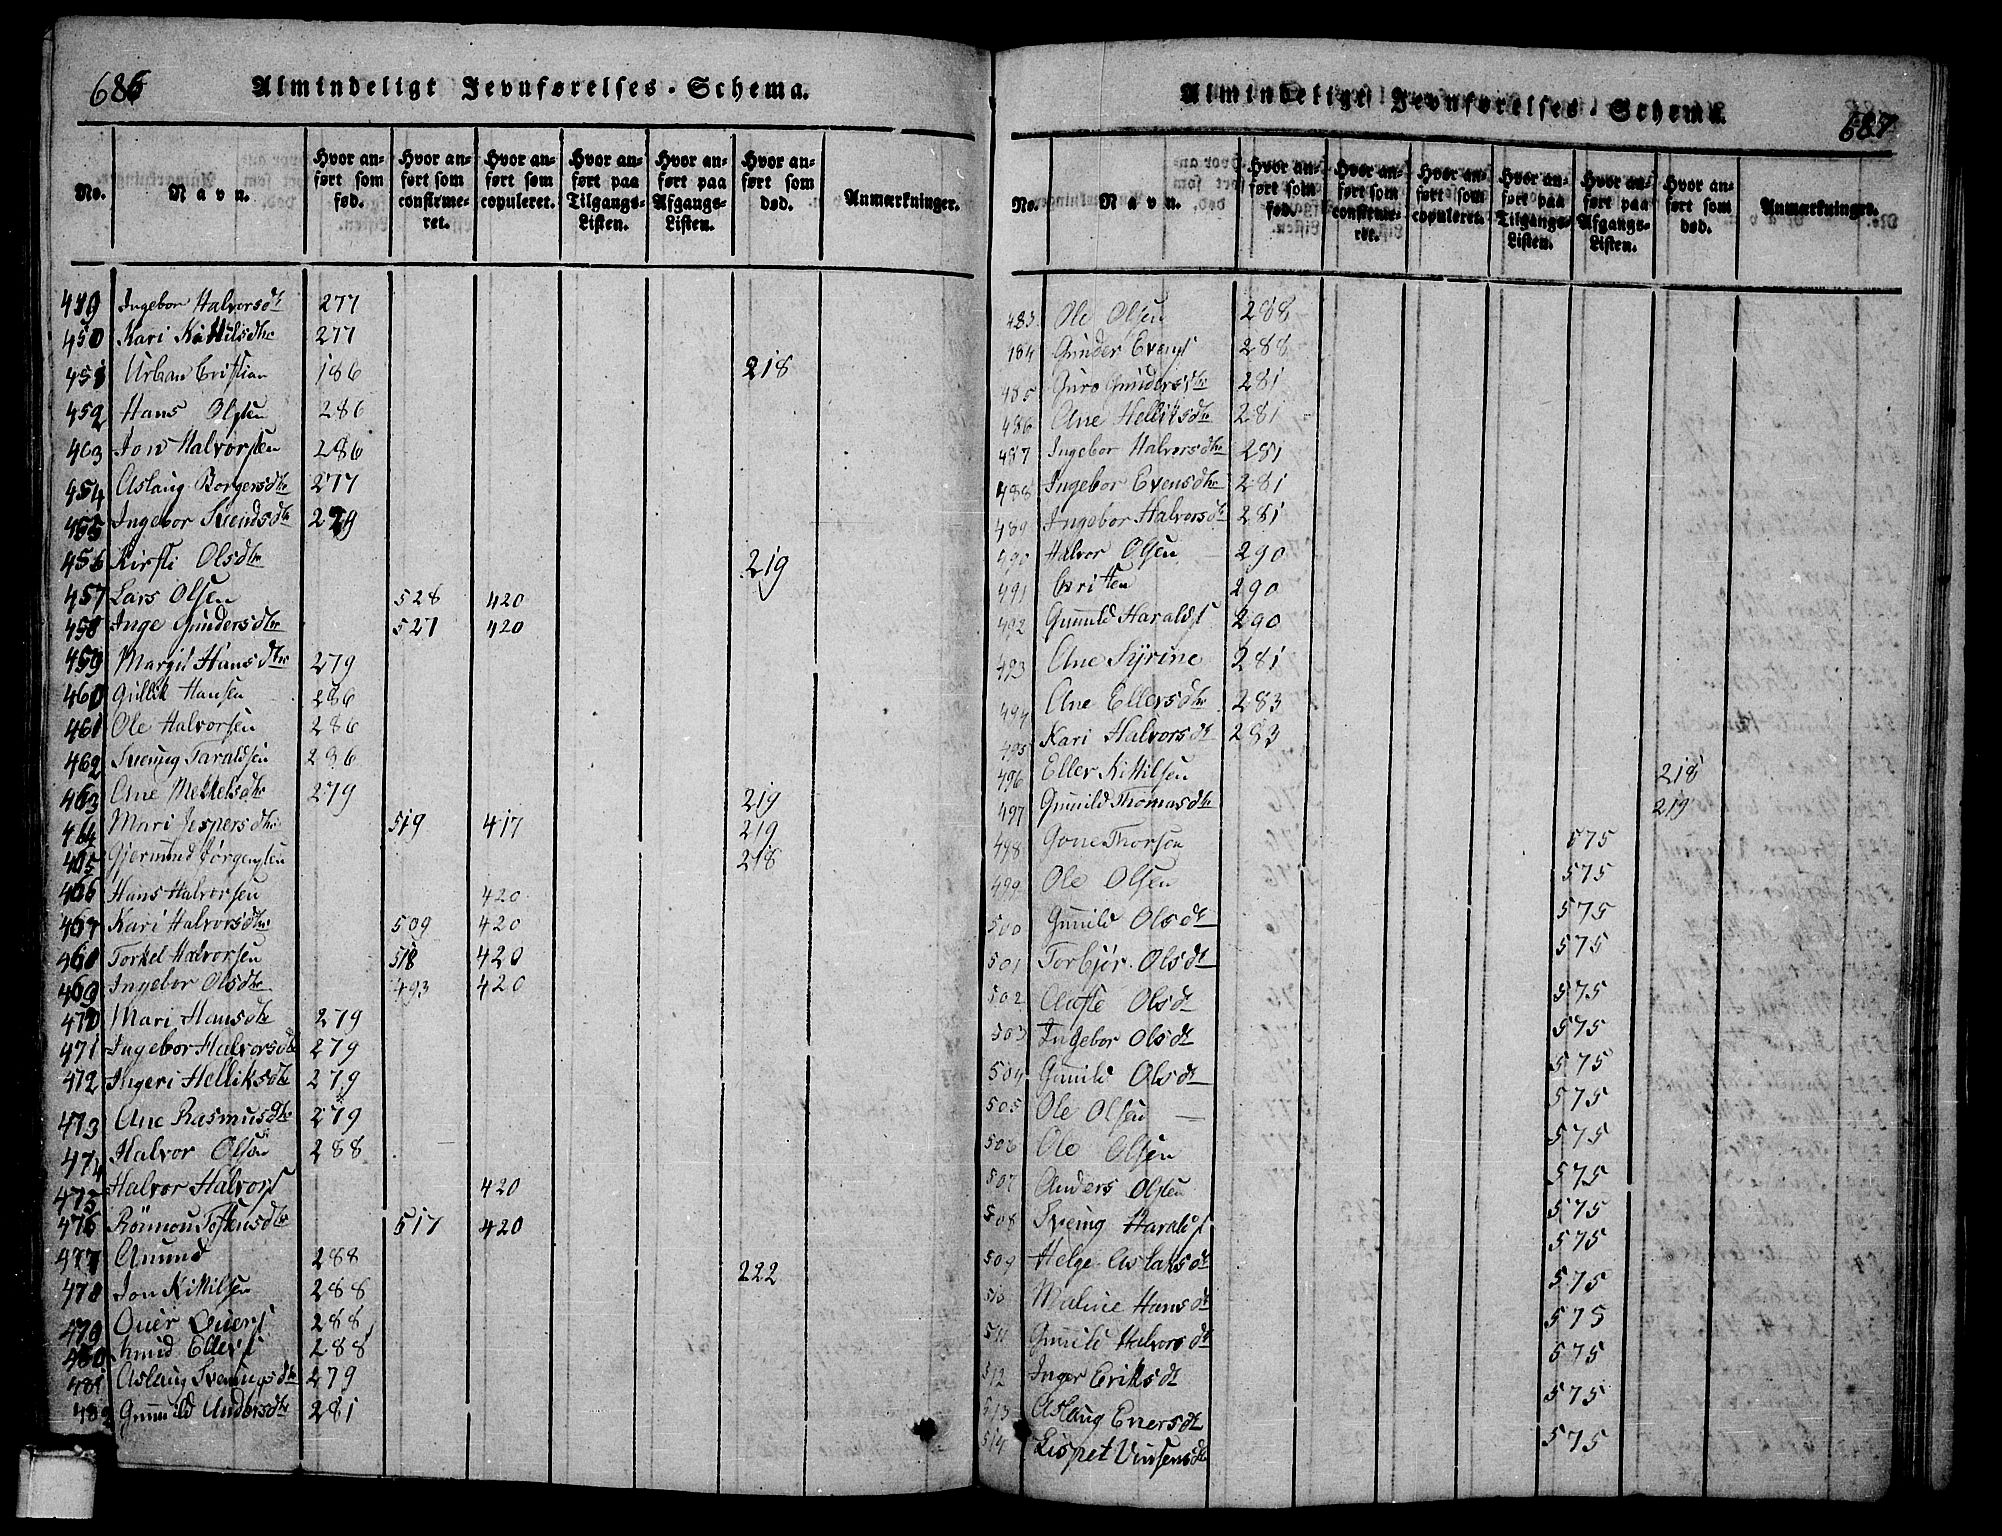 686
Almindeligt Jevnførelses-Schema.
No. Navn. Hvor anført som fød. Hvor anført som confirmeret. Hvor anført som copuleret. Hvor anført paa Tilgangs-Listen. Hvor anført paa Afgangs-Listen. Hvor anført som død. Anmærkninger.
449 Ingebor Halvorsdtr 277
450 Kari Kittilsdtr 277
451 Urban Cristian 186 218
452 Hans Olsen 286
453 Jon Halvorsen 286
454 Aslaug Borgersdtr 277
455 Ingebor Svendsdtr 279
456 Kirsti Olsdtr 219
457 Lars Olsen 528 420
458 Inge Gundersdtr 527 420
459 Margit Hansdtr 279
460 Gullik Hansen 286
461 Ole Halvorsen 286
462 Svenug Taraldsen 286
463 Ane Mekkelsdtr 279 219
464 Mari Jespersdtr 519 417 219
465 Gjermund Jørgensen 218
466 Hans Halvorsen 420
467 Kari Halvorsdtr 509 420
468 Torkel Halvorsen 518 420
469 Ingebor Olsdtr 493 420
470 Mari Hansdtr 279
471 Ingebor Halvorsdtr 279
472 Ingeri Helliksdtr 279
473 Ane Rasmusdtr 279
474 Halvor Olsen 288
475 Halvor Halvors 420
476 Rönnou Toftensdtr 517 420
477 Amund 288
478 Jon Kittilsen 288 222
479 Ouer Ouers 288
480 Knud Ellefs 288
481 Aslaug Svenugsdtr 279
482 Gunnild Andersdtr 281
687
Almindeligt Jevnførelses-Schema.
No. Navn. Hvor anført som fød. Hvor anført som confirmeret. Hvor anført som copuleret. Hvor anført paa Tilgangs-Listen. Hvor anført paa Afgangs-Listen. Hvor anført som død. Anmærkninger.
483 Ole Olsen 288
484 Gunder Evens 288
485 Guro Gundersdtr 281
486 Ane Helliksdtr 281
487 Ingebor Halvorsdtr 281
488 Ingebor Evensdtr 281
489 Ingebor Halvorsdtr 281
490 Halvor Olsen 290
491 Cristen 290
492 Gunuld Haralds 290
493 Ane Syrine 281
494 Ane Ellersdtr 283
495 Kari Halvorsdt 283
496 Eller Kittilsen 218
497 Gunild Thomasdtr 219
498 Gone Thorsen 575
499 Ole Olsen 575
500 Gunild Olsdt 575
501 Torbjør Olsdt 575
502 Aaste Olsdt 575
503 Ingebor Olsdt 575
504 Gunild Olsdt 575
505 Ole Olsen 575
506 Ole Olsen 575
507 Anders Olsen 575
508 Svenug Harals 575
509 Helge Aslaksdt 575
510 Maline Hansdt 575
511 Gunild Halvorsdt 575
512 Inger Eriksdt 575
513 Aslaug Enersdt 575
514 Lispet Vinsensdtr 575